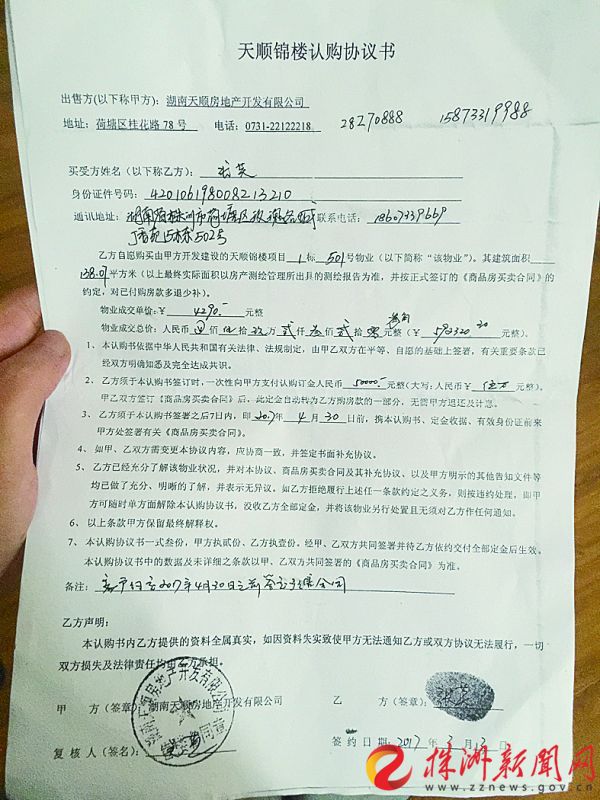 天顺锦楼认购协议书
出售方(以下称甲方): 湖南天顺房地产开发有限公司
地址: 荷塘区桂花路 78 号 电话: 0731-22122218 28270888 15873319988
买受方姓名(以下称乙方):
身份证件号码: 420106198008213210
通讯地址: 湖南省株洲市荷塘区玫瑰名城 联系电话: 18607339669
5栋502号
乙方自愿购买由甲方开发建设的天顺锦楼项目 1 栋 501 号物业(以下简称“该物业”)。其建筑面积
138.01 平方米(以上最终实际面积以房产测绘管理所出具的测绘报告为准,并按正式签订的《商品房买卖合同》的
约定,对已付购房款多退少补)。
物业成交单价:¥ 4290.- 元整
物业成交总价:人民币 佰 拾 万 贰 仟 叁 佰 贰 拾 元整(¥ 592320 元整)。
1、 本认购书依据中华人民共和国有关法律、法规制定,由甲乙双方在平等、自愿的基础上签署,有关重要条款已
经双方明确知悉及完全达成共识。
2、 乙方须于本认购书签订时,一次性向甲方支付认购订金人民币 50000.- 元整(大写:人民币¥ 伍万 元整)。
甲乙双方签订《商品房买卖合同》后,此定金自动转为乙方购房款的一部分,无需甲方退还及计息。
3、 乙方须于本认购书签署之后7日内,即 2017 年 4 月 30 日前,携本认购书、定金收据、有效身份证前来
甲方处签署有关《商品房买卖合同》。
4、 如甲、乙双方需变更本协议内容,应协商一致,并签定书面补充协议。
5、 乙方已经充分了解该物业状况,并对本协议、商品房买卖合同及其补充协议、以及甲方明示的其他告知文件等
均已做了充分、明晰的了解,并表示无异议。如乙方拒绝履行上述任一条款约定之义务,则按违约处理,即甲
方可随时单方面解除本认购协议书,没收乙方全部定金,并将该物业另行处置且无须对乙方作任何通知。
6、 以上条款甲方保留最终解释权。
7、 本认购协议书一式叁份,甲方执贰份、乙方执壹份。经甲、乙双方共同签署并待乙方依约交付全部定金后生效。
本认购协议书中的数据及未详细之条款以甲、乙双方共同签署的《商品房买卖合同》为准。
备注: 2017年4月30日之前签订正式合同
乙方声明:
本认购书内乙方提供的资料全属真实,如因资料失实致使甲方无法通知乙方或双方协议无法履行,一切
双方损失及法律责任均由乙方承担。
甲 方(签章): 湖南天顺房地产开发有限公司 乙 方(签章):
复 核 人(签名): 签 约 日 期: 2017 年 3 月 3 日
湖南天顺房地产开发有限公司
株洲新闻网
www.zznews.gov.cn